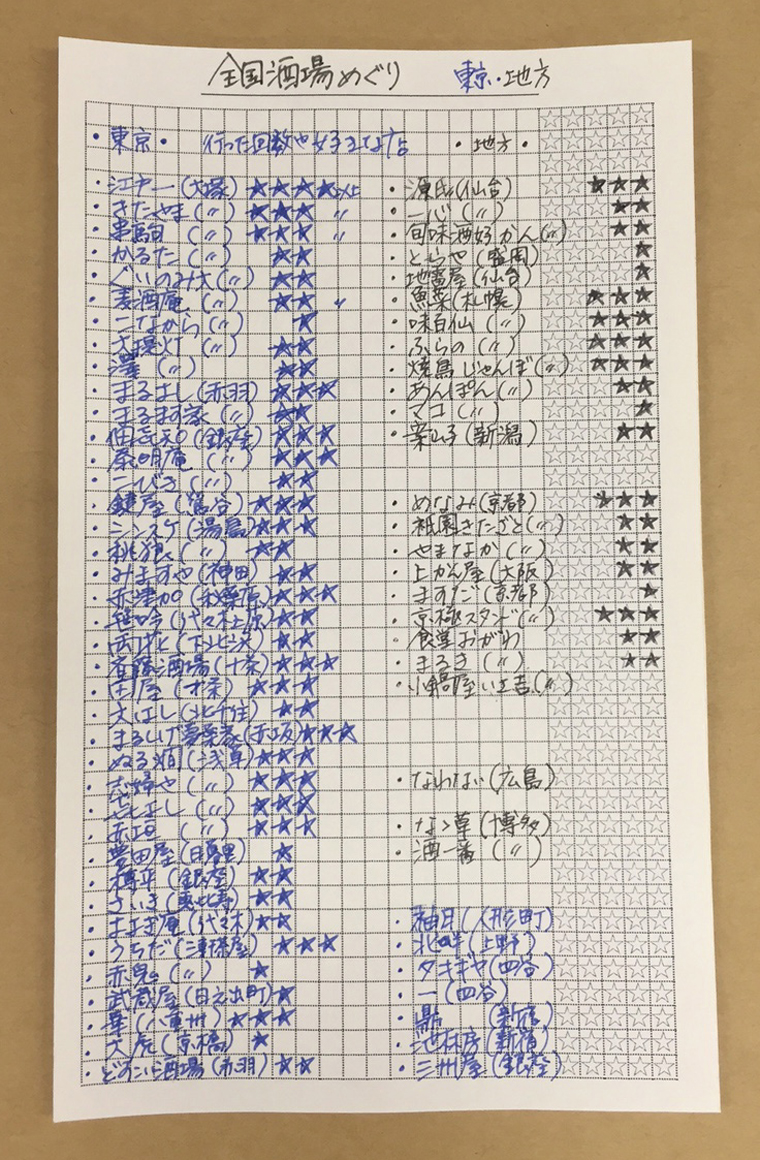 全国酒場めぐり 東京・地方
・東京・ 行った回数や好きな店
・江戸一(大塚)★★★★以上
・きたやま(〃)★★★〃
・串駒(〃)★★★〃
・かるた(〃)★★
・ぐいのみ大(〃)★★
・麦酒庵(〃)★★〃
・こなから(〃)★
・大提灯(〃)★★
・澤(〃)★★
・まるよし(赤羽)★★★
・まるます家(〃)★★
・佃㐂知(銀座)★★★
・茶明庵(〃)★★★
・こびき(〃)★★
・鍵屋(鶯谷)★★★
・シンスケ(湯島)★★★
・(〃)★★
・みますや(神田)★★
・赤津加(秋葉原)★★★
・(代々木上原)★★
・両花(下北沢)★★
・斎藤酒場(十条)★★★
・田や(十条)★★★
・大はし(北千住)★★
・まるしげ夢葉家(赤坂)★★★
・ぬる燗(浅草)★★★
・志婦や(〃)★★★
・(〃)★★★
・赤垣(〃)★★★
・豊田屋(日暮里)★
・樽平(銀座)★★
・さいき(恵比寿)★★
・まよぎ庵(代々木)★★
・うちだ(三軒茶屋)★★★
・赤鬼(〃)★
・武蔵屋(日之出町)★
・華(八重州)★★★
・大虎(京橋)★
・どすこい酒場(赤羽)★★
・地方・
・源氏(仙台)★★★
・一心(〃)★★
・旬味酒好かん(〃)★★
・とらや(盛岡)★
・地雷屋(仙台)★
・魚菜(札幌)★★★
・味百仙(〃)★★★
・ふらの(〃)★★★
・焼鳥じゃんぼ(〃)★★★
・あんぽん(〃)★★
・マコ(〃)★
・案山子(新潟)★★
・めなみ(京都)★★★
・祇園きたざと(〃)★★
・やまなか(〃)★★
・上かん屋(大阪)★★
・ますだ(京都)★
・京極スタンド(〃)★★★
・食堂おがわ★★
・まるき(〃)★★
・小鍋屋いさ吉(〃)
・なわない(広島)
・なゝ草(博多)
・酒一番(〃)
・紬月(人形町)
・北畔(上野)
・タキギヤ(四谷)
・一(四谷)
・鼎(新宿)
・池林房(新宿)
・三州屋(銀座)